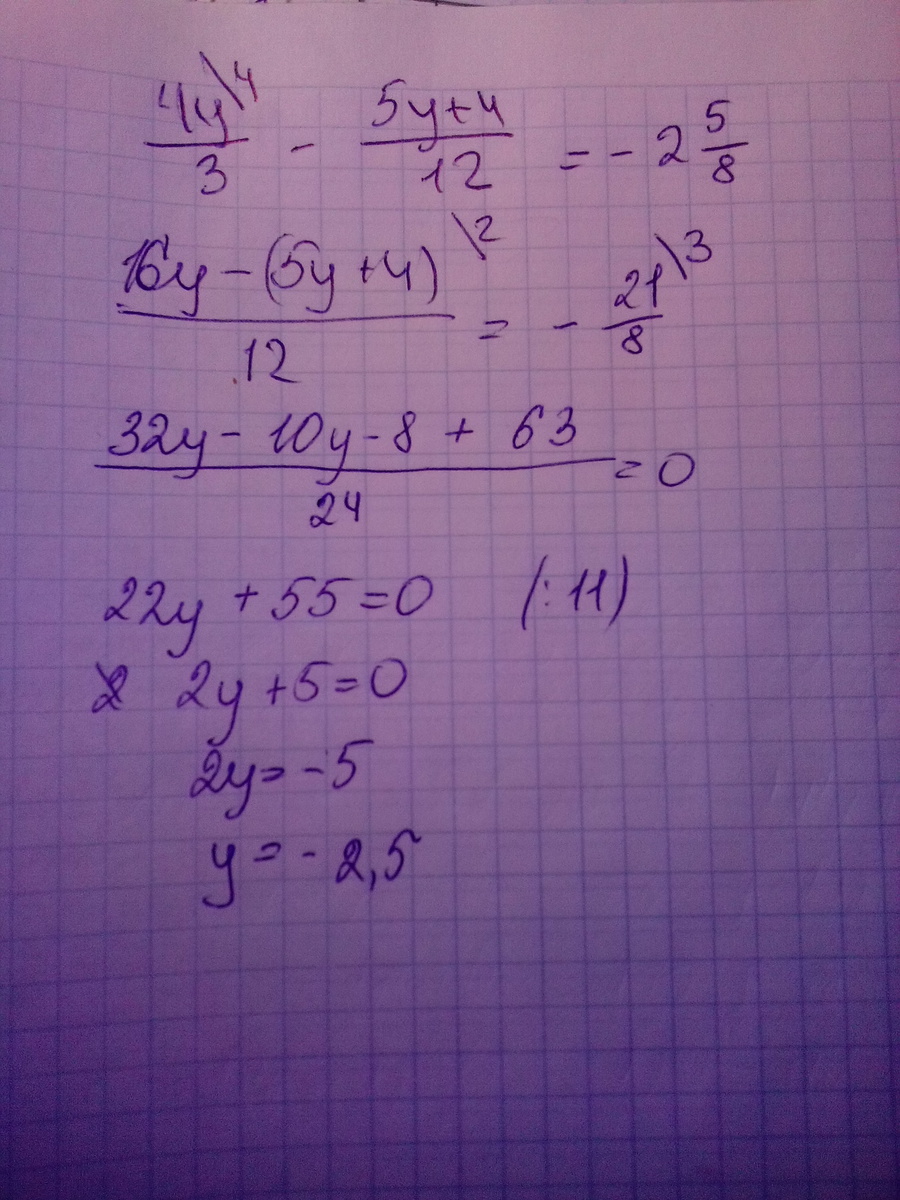 4y\4/3 - 5y+4/12 = - 2 5/8
16y - (5y+4)\2/12 = - 21\3/8
32y - 10y - 8 + 63/24 = 0
22y + 55 = 0 (:11)
2y + 5 = 0
2y = - 5
y = - 2,5